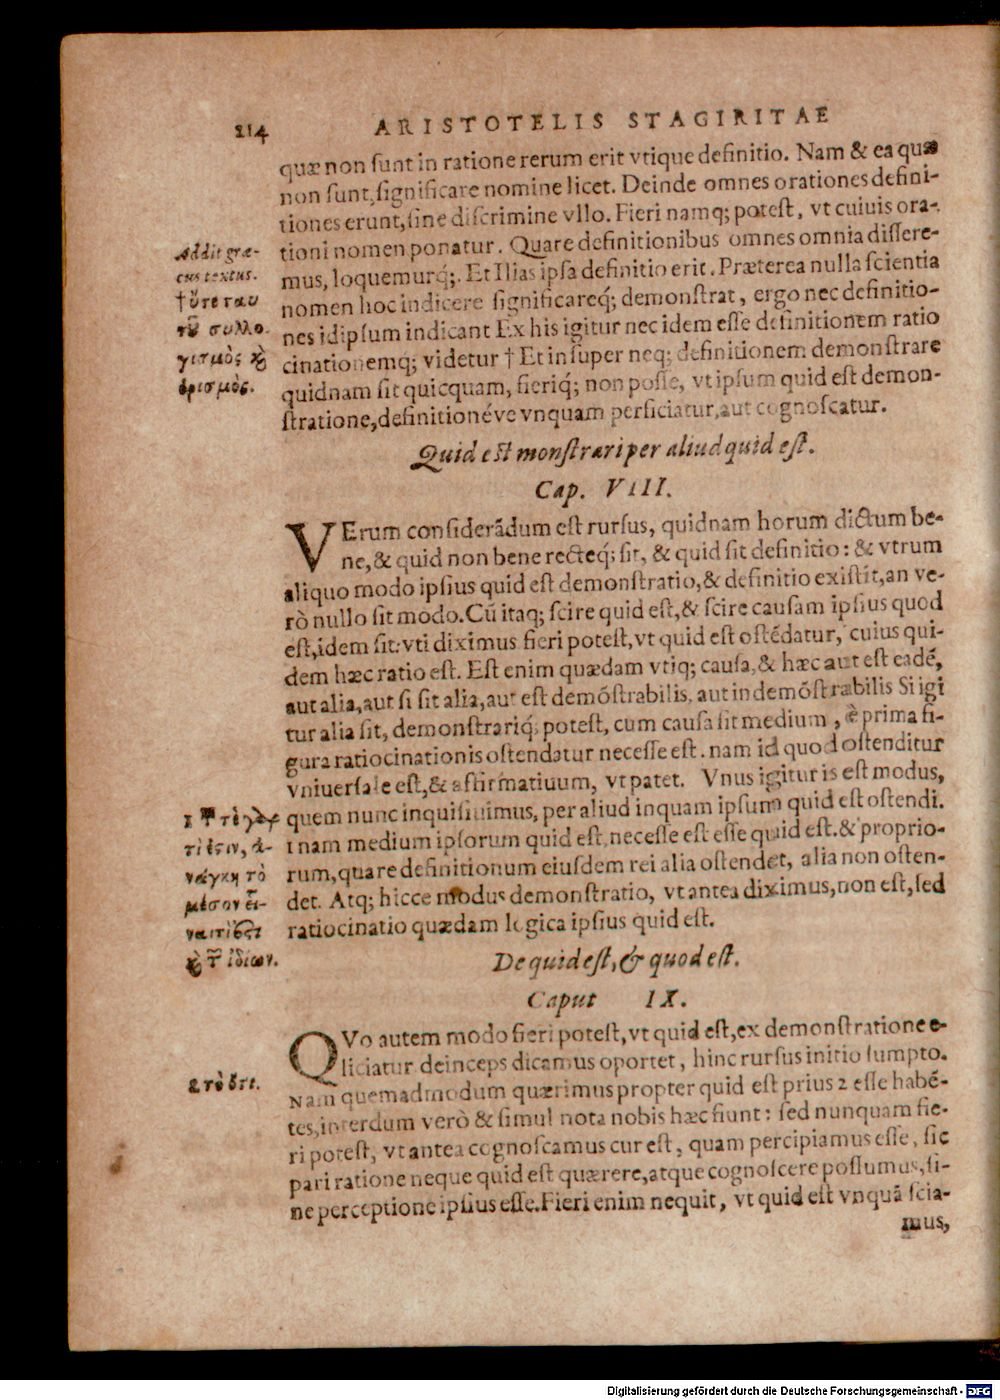 214 ARISTOTELIS STAGIRITAE
quæ non ſunt in ratione rerum erit vtique definitio. Nam & ea quæ
non ſunt, ſignificare nomine licet. Deinde omnes orationes defini-
tiones erunt, ſine diſcrimine vllo. Fieri namq; poteſt, vt cuiuis ora-
tioni nomen ponatur. Quare definitionibus omnes omnia differe-
mus, loquemurq́;. Et Ilias ipſa definitio erit. Præterea nulla ſcientia
nomen hoc indicere ſignificareq́; demonſtrat, ergo nec definitio-
nes idipſum indicant Ex his igitur nec idem eſſe definitionem ratio
cinationemq; videtur † Et inſuper neq; definitionem demonſtrare
quidnam ſit quicquam, fieriq́; non poſſe, vt ipſum quid eſt demon-
ſtratione, definitionéve vnquam perficiatur, aut cognoſcatur.
Addit græ-
cus textus.
† ὅτε ταυ
τὸ συλλο-
γισμὸς ϗ
ὁρισμὸς.
Quid eſt monſtrari per aliud quid eſt.
Cap. VIII.
VErum conſiderãdum eſt rurſus, quidnam horum dictum be-
ne, & quid non bene recteq́; ſit, & quid ſit definitio: & vtrum
aliquo modo ipſius quid eſt demonſtratio, & definitio exiſtit, an ve-
rò nullo ſit modo. Cũ itaq; ſcire quid eſt, & ſcire cauſam ipſius quod
eſt, idem ſit: vti diximus fieri poteſt, vt quid eſt oſtẽdatur, cuius qui-
dem hæc ratio eſt. Eſt enim quædam vtiq; cauſa, & hæc aut eſt eadẽ,
aut alia, aut ſi ſit alia, aut eſt demõſtrabilis, aut indemõſtrabilis Si igi
tur alia ſit, demonſtrariq́; poteſt, cum cauſa ſit medium, è prima fi-
gura ratiocinationis oſtendatur neceſſe eſt. nam id quod oſtenditur
vniuerſale eſt, & affirmatiuum, vt patet. Vnus igitur is eſt modus,
quem nunc inquiſiuimus, per aliud inquam ipſum quid eſt oſtendi.
1 nam medium ipſorum quid eſt, neceſſe eſt eſſe quid eſt. & proprio-
rum, quare definitionum eiuſdem rei alia oſtendet, alia non oſten-
det. Atq; hicce modus demonſtratio, vt antea diximus, non eſt, ſed
ratiocinatio quædam logica ipſius quid eſt.
τὸ γὰρ
τί ἐστιν, ἀ-
νάγκη τὸ
μέσον εἶ-
ναι τί ἐστι
ϗ ἰδίων.
De quid eſt, & quod eſt.
Caput IX.
QVo autem modo fieri poteſt, vt quid eſt, ex demonſtratione e-
liciatur deinceps dicamus oportet, hinc rurſus initio ſumpto.
Nam quemadmodum quærimus propter quid eſt prius 2 eſſe habẽ-
tes, interdum verò & ſimul nota nobis hæc fiunt: ſed nunquam fie-
ri poteſt, vt antea cognoſcamus cur eſt, quam percipiamus eſſe, ſic
pari ratione neque quid eſt quærere, atque cognoſcere poſſumus, ſi-
ne perceptione ipſius eſſe. Fieri enim nequit, vt quid eſt vnquã ſcia-
mus,
2 τὸ ὅτι.
Digitalisierung gefördert durch die Deutsche Forschungsgemeinschaft - DFG